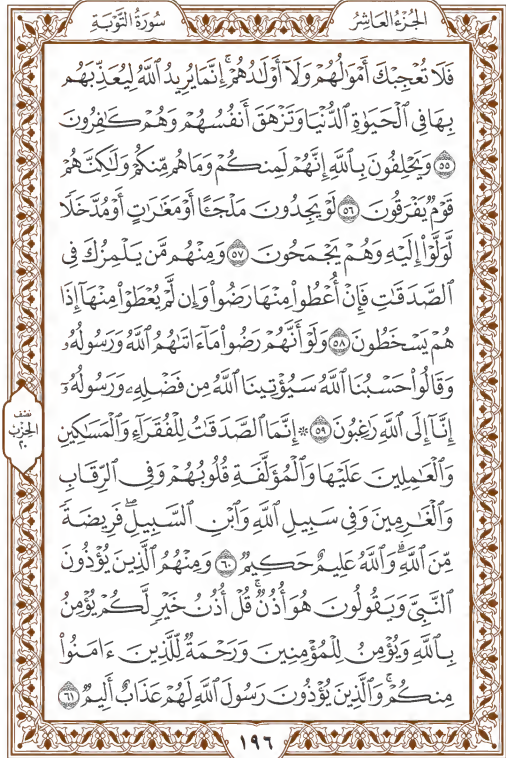 الجُزْءُ العَاشِرُ
سُورَةُ التَّوْبَةِ
فَلَا تُعْجِبْكَ أَمْوَٰلُهُمْ وَلَآ أَوْلَٰدُهُمْ ۚ إِنَّمَا يُرِيدُ ٱللَّهُ لِيُعَذِّبَهُم
بِهَا فِى ٱلْحَيَوٰةِ ٱلدُّنْيَا وَتَزْهَقَ أَنفُسُهُمْ وَهُمْ كَٰفِرُونَ
٥٥ وَيَحْلِفُونَ بِٱللَّهِ إِنَّهُمْ لَمِنكُمْ وَمَا هُم مِّنكُمْ وَلَٰكِنَّهُمْ
قَوْمٌ يَفْرَقُونَ ٥٦ لَوْ يَجِدُونَ مَلْجَـًٔا أَوْ مَغَٰرَٰتٍ أَوْ مُدَّخَلًا
لَّوَلَّوْا۟ إِلَيْهِ وَهُمْ يَجْمَحُونَ ٥٧ وَمِنْهُم مَّن يَلْمِزُكَ فِى
ٱلصَّدَقَٰتِ فَإِنْ أُعْطُوا۟ مِنْهَا رَضُوا۟ وَإِن لَّمْ يُعْطَوْا۟ مِنْهَآ إِذَا
هُمْ يَسْخَطُونَ ٥٨ وَلَوْ أَنَّهُمْ رَضُوا۟ مَآ ءَاتَىٰهُمُ ٱللَّهُ وَرَسُولُهُۥ
وَقَالُوا۟ حَسْبُنَا ٱللَّهُ سَيُؤْتِينَا ٱللَّهُ مِن فَضْلِهِۦ وَرَسُولُهُۥٓ
إِنَّآ إِلَى ٱللَّهِ رَٰغِبُونَ ٥٩ ۞ إِنَّمَا ٱلصَّدَقَٰتُ لِلْفُقَرَآءِ وَٱلْمَسَٰكِينِ
وَٱلْعَٰمِلِينَ عَلَيْهَا وَٱلْمُؤَلَّفَةِ قُلُوبُهُمْ وَفِى ٱلرِّقَابِ
وَٱلْغَٰرِمِينَ وَفِى سَبِيلِ ٱللَّهِ وَٱبْنِ ٱلسَّبِيلِ ۖ فَرِيضَةً
مِّنَ ٱللَّهِ ۗ وَٱللَّهُ عَلِيمٌ حَكِيمٌ ٦٠ وَمِنْهُمُ ٱلَّذِينَ يُؤْذُونَ
ٱلنَّبِىَّ وَيَقُولُونَ هُوَ أُذُنٌ ۚ قُلْ أُذُنُ خَيْرٍ لَّكُمْ يُؤْمِنُ
بِٱللَّهِ وَيُؤْمِنُ لِلْمُؤْمِنِينَ وَرَحْمَةٌ لِّلَّذِينَ ءَامَنُوا۟
مِنكُمْ ۚ وَٱلَّذِينَ يُؤْذُونَ رَسُولَ ٱللَّهِ لَهُمْ عَذَابٌ أَلِيمٌ ٦١
نصف
الحزب
٢٠
١٩٦